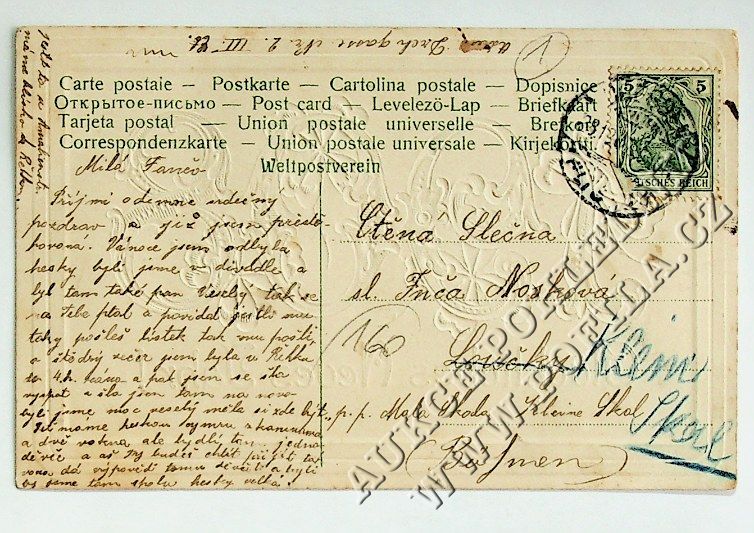 Carte postale — Postkarte — Cartolina postale — Dopisnice
Открытое-письмо — Post card — Levelező-Lap — Briefkaart
Tarjeta postal — Union postale universelle — Brefkort
Correspondenzkarte — Union postale universale — Kirjekortti.
Weltpostverein
5 5
DEUTSCHES REICH
Milá Fančo
Přijmi odemne srdečný
pozdrav a již jsem přestě-
hovona. Vánoce jsem odbyla
hesky byli jsme v divadle a
byl tam také pan Veselý tak se
na Tebe ptal a povidal jestli mu
taky pošleš lístek tak mu pošli,
a štědrý večer jsem byla v
4 h. rána a pak jsem se šla
vyspat a šla jsem tam na novo
byli jsme moc veselý měla si zde být,
máme heskou
a dvě vokna ale bydlí tam jedna
děvče a až Ty budeš chtít přijít tak
vona dá výpověď tomu děvčeti a byli
by sme tam spolu hesky velká!
Ctěná Slečna
sl. Fnča Nosková
Loučky
p. p. Malá Skoda, Kleine Skal
(Böhmen)
Klein
Skal
160
1
AUKCE POHLEDŮ
WWW.SOFILA.CZ